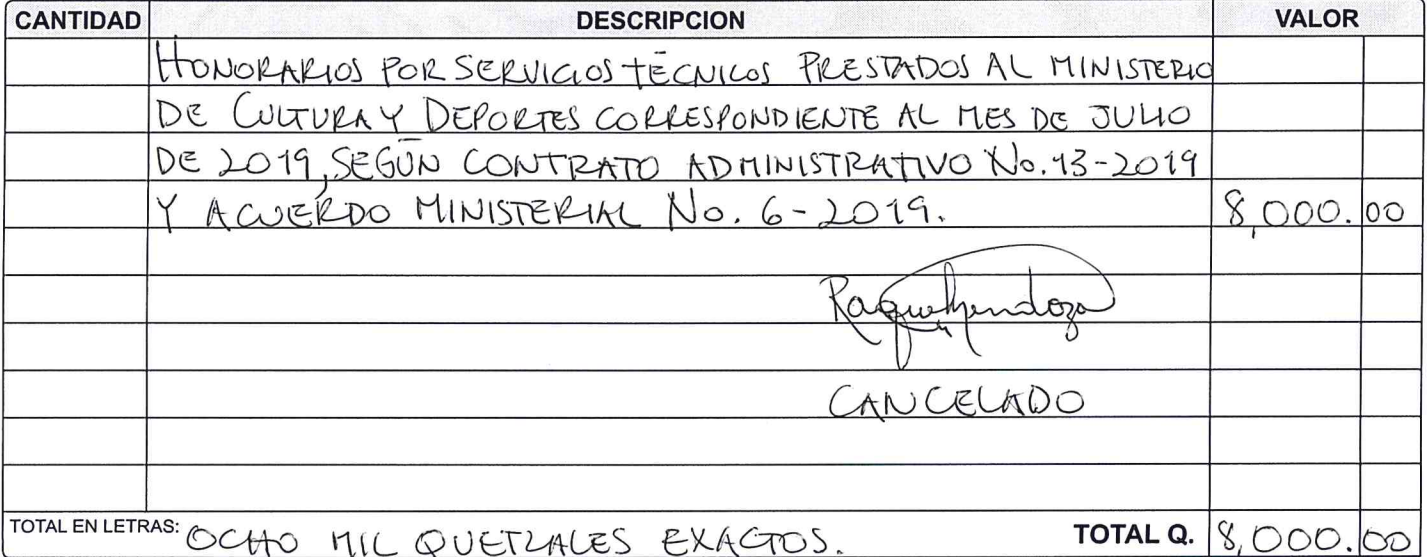 CANTIDAD DESCRIPCION VALOR
HONORARIOS POR SERVICIOS TÉCNICOS PRESTADOS AL MINISTERIO
DE CULTURA Y DEPORTES CORRESPONDIENTE AL MES DE JULIO
DE 2019, SEGÚN CONTRATO ADMINISTRATIVO No. 13-2019
Y ACUERDO MINISTERIAL No. 6-2019. 8,000.00
Raquel Mendoza
CANCELADO
TOTAL EN LETRAS: OCHO MIL QUETZALES EXACTOS. TOTAL Q. 8,000.00